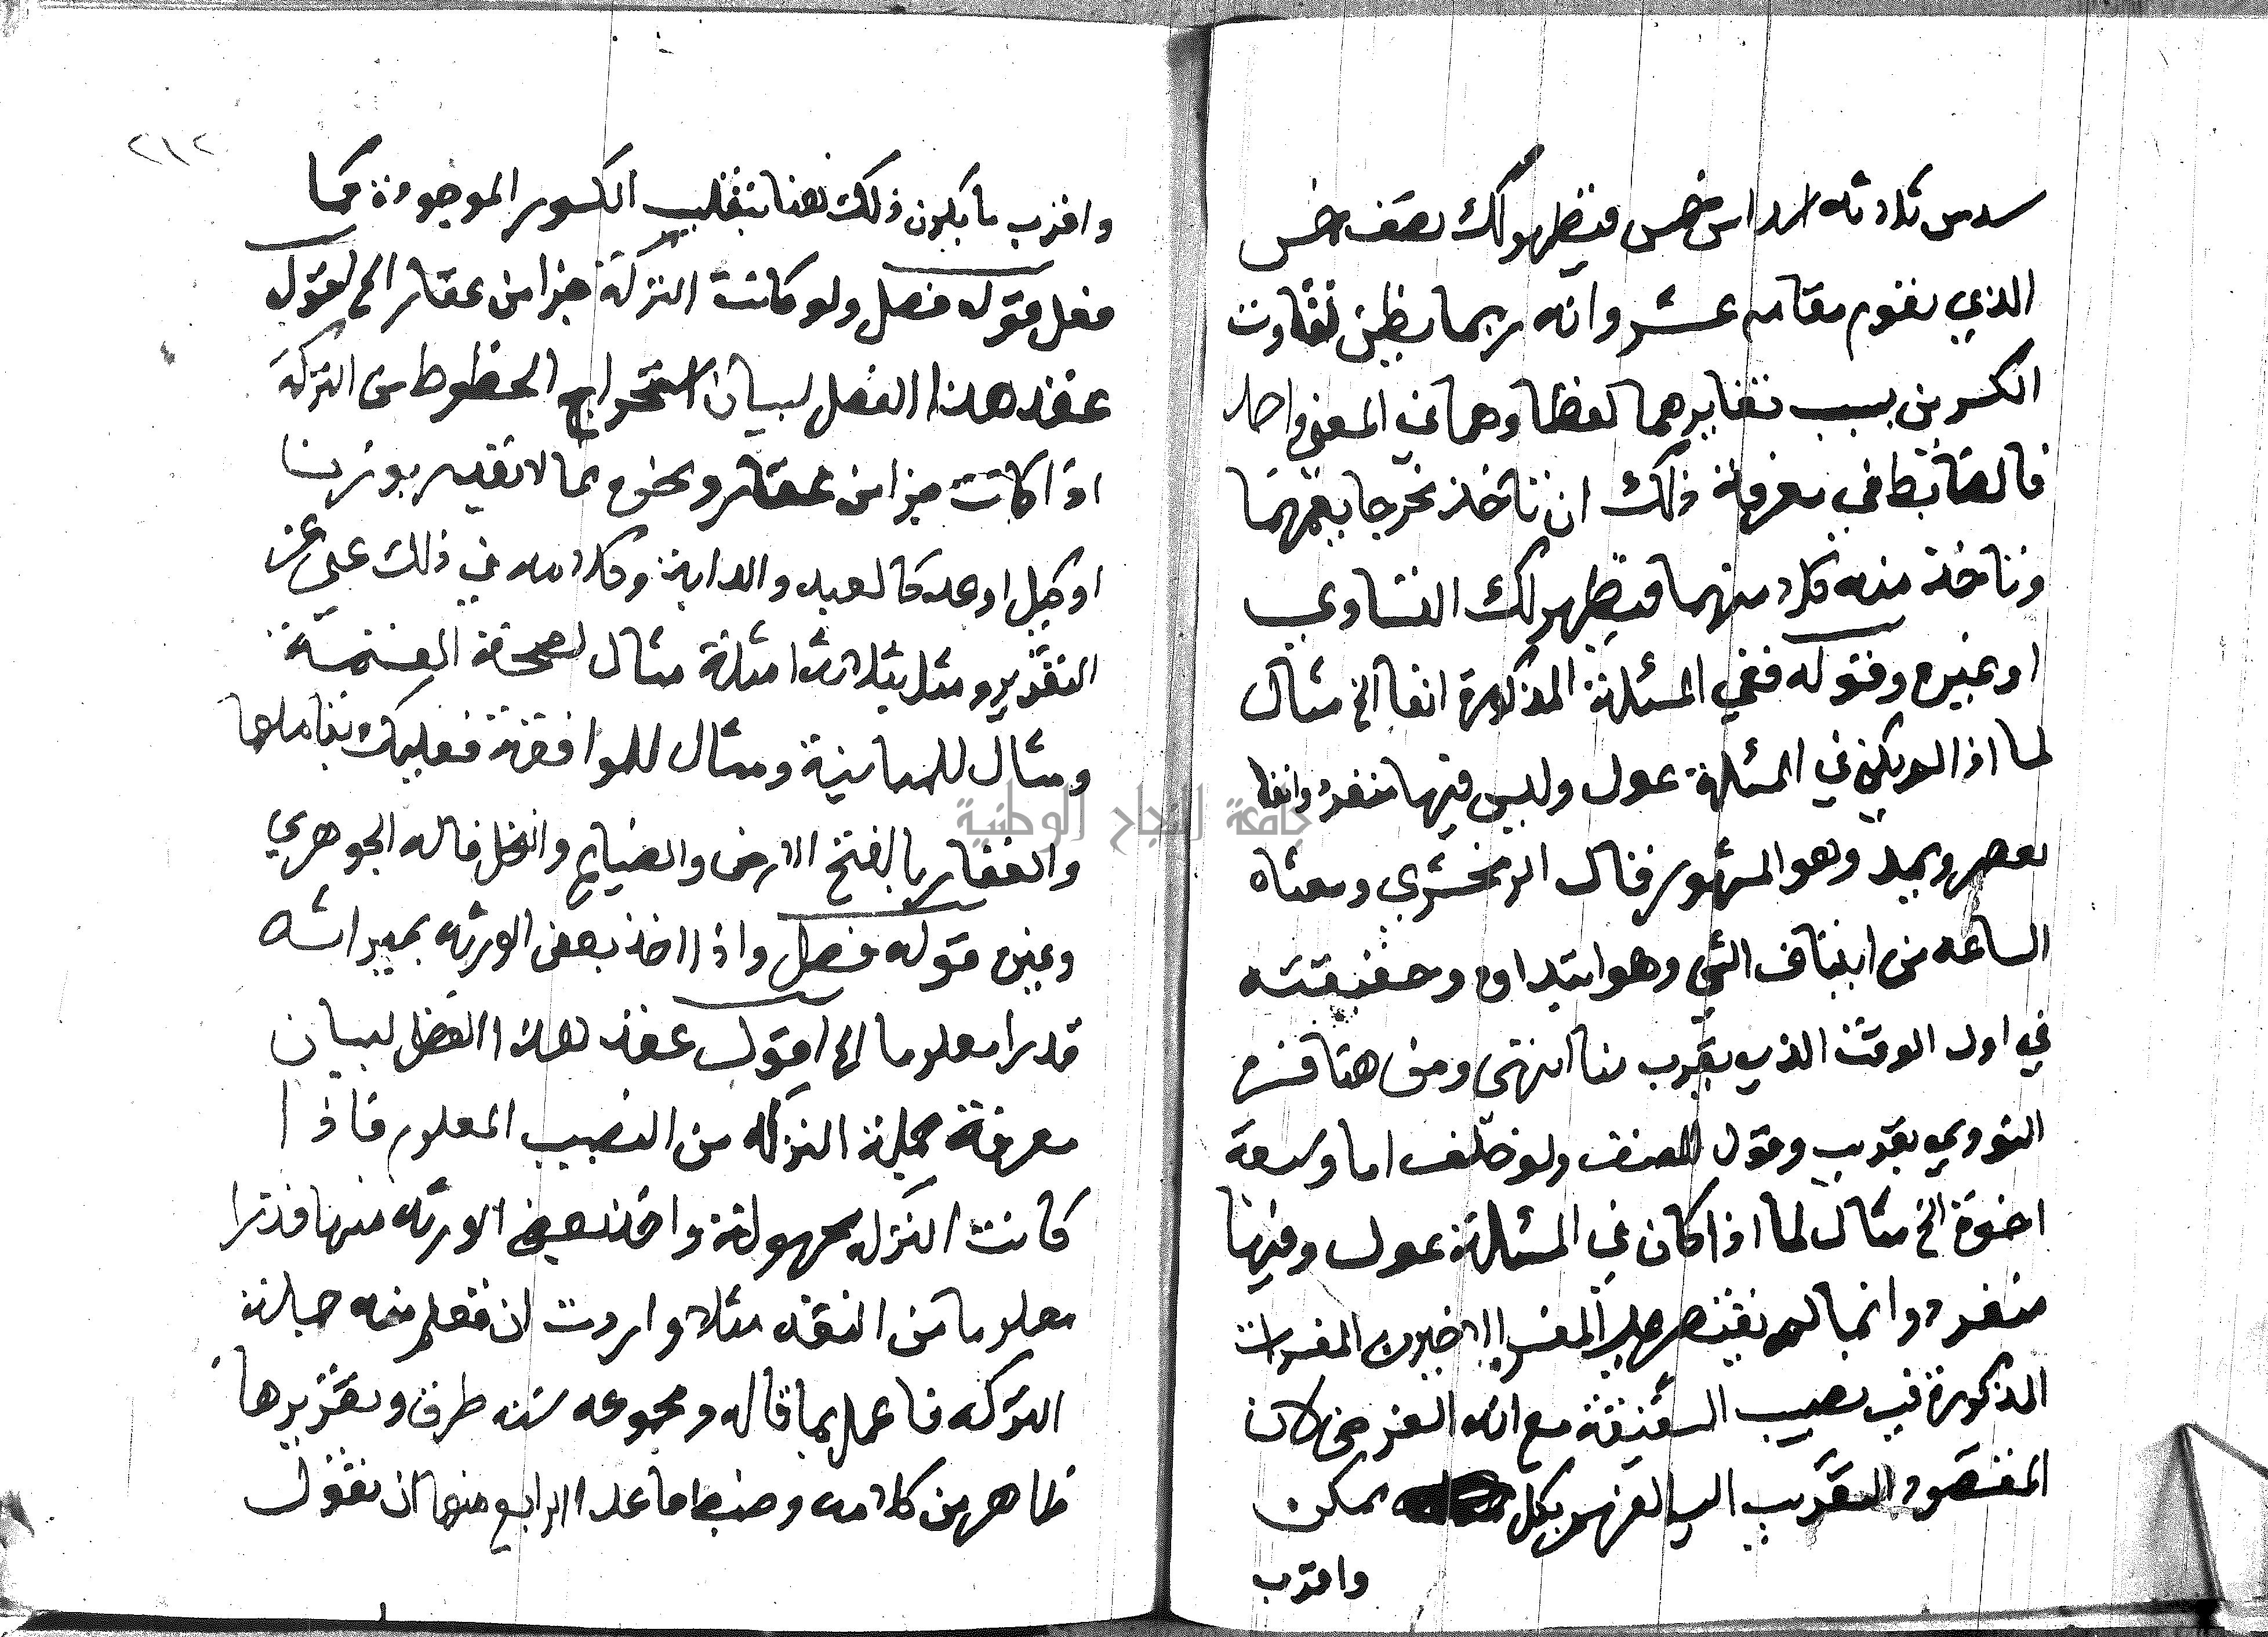 سدس ثلاثه اسداس خمس فيظهر لك نصف خمس
الذي يقوم مقامه عشر وانه ربما يظن تفاوت
الكسرين بسبب تغايرهما لفظا وهما في المعنى واحد
فالضابط في معرفة ذلك ان تاخذ مخرجا يعمهما
وتاخذ منه كلا منهما فيظهر لك التساوي
او غيره وقوله ففي المسئلة المذكورة انفا الخ مثال
لما اذا لم يكن في المسئلة عول وليس فيها منفرد وانفا
يقصر ويمد وهو المشهور فقال الزمخشري ومعناه
الساعه من ايتناف الشي وهو ابتداوه وحقيقته
في اول الوقت الذي يقرب منا انتهى ومن هنا فسره
النووي بقريب وقول المصنف ولو خلف اما وسبعة
اخوة الخ مثال لما اذا كان في المسئلة عول وفيها
منفرد وانما لم يقتصر على الاخير من المفسرات
المذكورة في نصيب الشقيقة مع انه الغرض لان
المقصود التقريب الي الفهم بكل يمكن
واقرب
٢١٢
واقرب ما يكون ذلك هنا بتقليب الكسور الموجودة كما
فعل قوله فصل ولو كانت التركة جزا من عقار الخ اقول
عقد هذا الفصل لبيان استخراج الحظوظ من التركة
اذا كانت جزا من عقار ونحوه مما لا تقدير بوزن
او كيل او عد كالعبد والدابة وكلامه في ذلك على
التقدير ومثل بثلاث امثلة مثال لصحة القسمة
ومثال للمباينة ومثال للموافقة فعليك بتاملها
والعقار بالفتح الارض والضياع والنخل قاله الجوهري
وغيره قوله فصل واذا اخذ بعض الورثه بميراثه
قدرا معلوما الخ اقول عقد هذا الفصل لبيان
معرفة جملة التركه من النصيب المعلوم فاذا
كانت التركه مجهولة واخذ بعض الورثه منها قدرا
معلوما من النقد مثلا واردت ان تعلم منه جملة
التركه فاعمل بما قاله ومجموعه سته طرق وتقريرها
ظاهر من كلامه وضبط ما عدا الرابع منها ان تقول
جامعة النجاح الوطنية